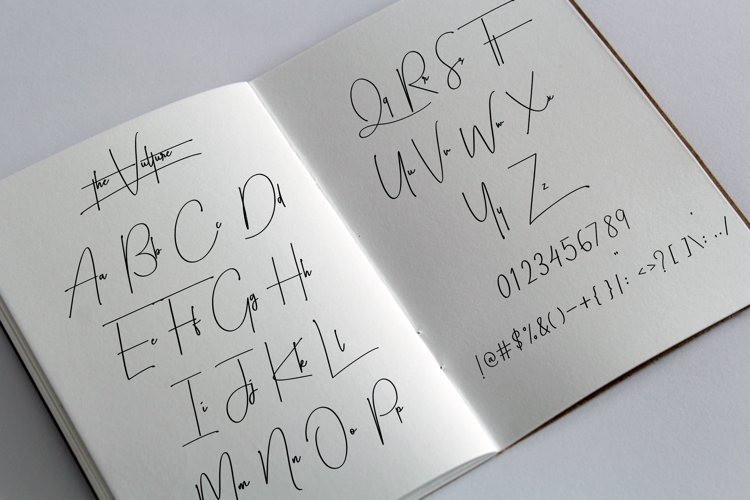 the Vulture
Aa Bb Cc Dd
Ee Ff Gg Hh
Ii Jj Kk Ll
Mm Nn Oo Pp
Qq Rr Ss Tt
Uu Vv Ww Xx
Yy Zz
0123456789
!@#$%&()-+{}|:"<>?[]\;'../